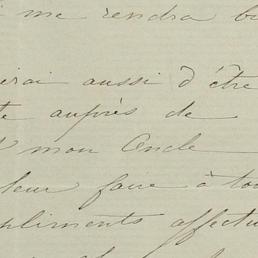 me rendra
erai aussi d'être
te auprès de
mon Oncle
leur faire à tou
pliments affectu